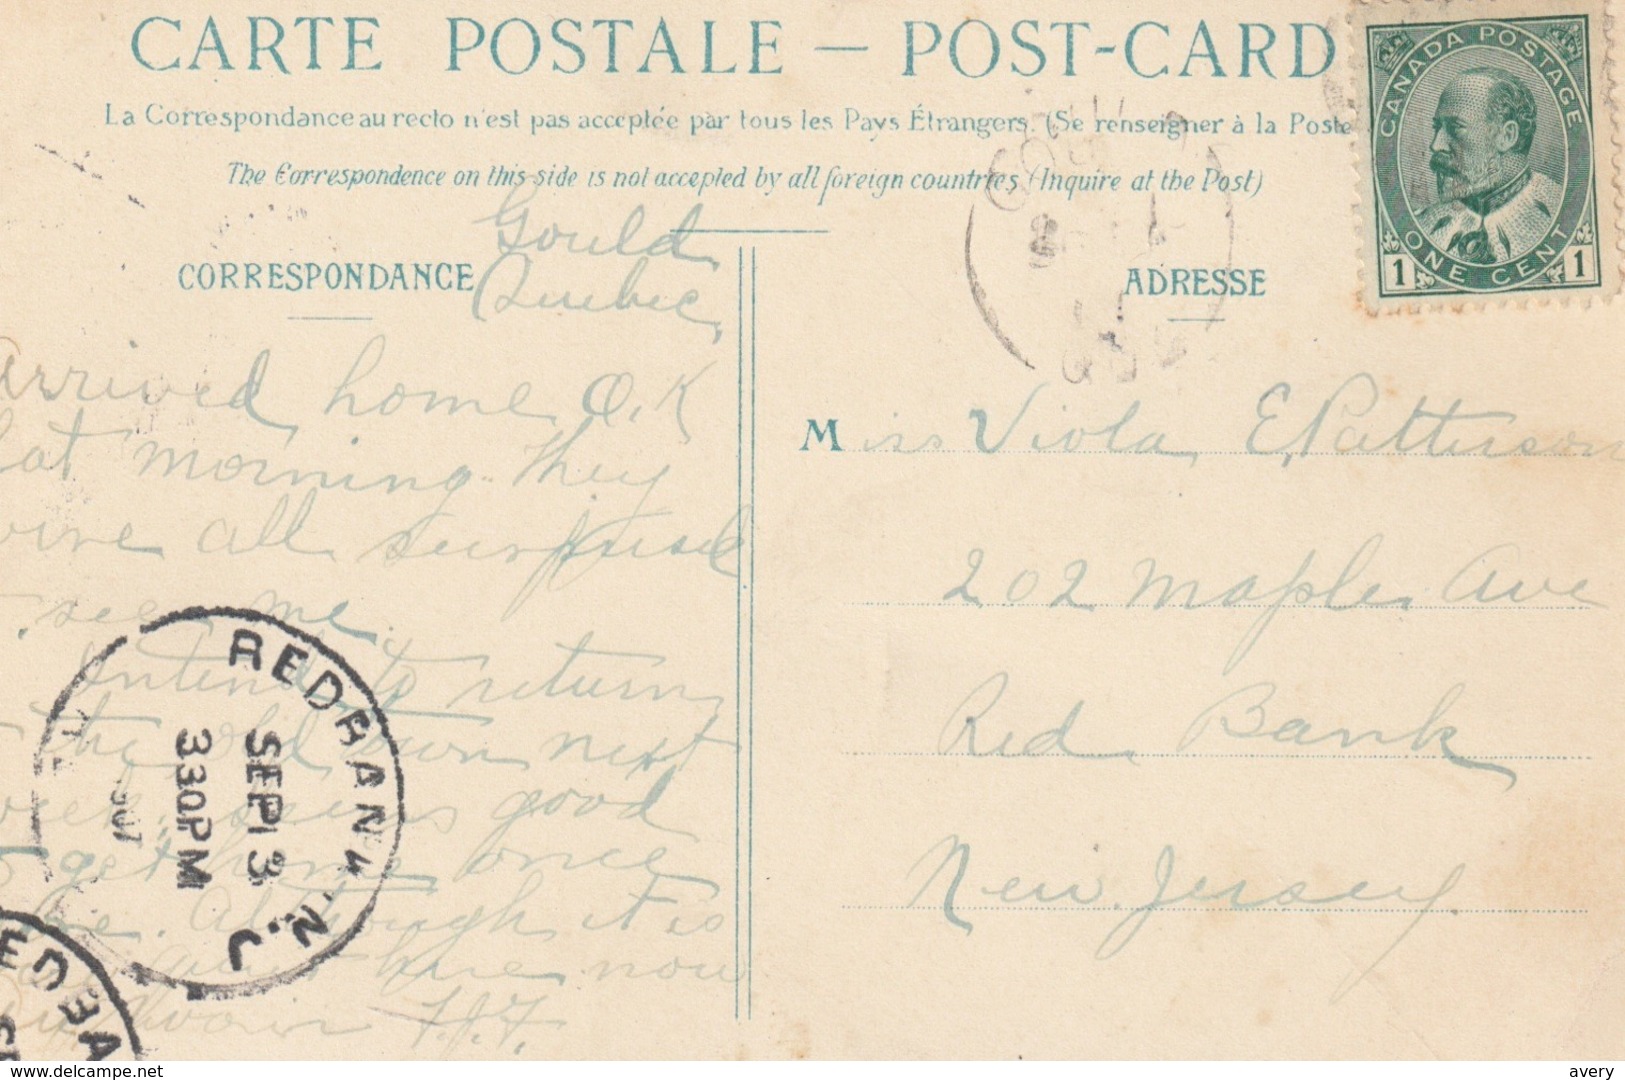 CARTE POSTALE — POST-CARD
La Correspondance au recto n'est pas acceptée par tous les Pays Étrangers. (Se renseigner à la Poste
The Correspondence on this side is not accepted by all foreign countries (Inquire at the Post)
CANADA POSTAGE
ONE CENT
1 1
CORRESPONDANCE
Gould
Quebec,
arrived home O.K
morning they
all surprised
see me.
Intend to return
the old town next
seems good
get home once
Although it is
here now
ADRESSE
Miss Viola E. Patterson
202 Maple Ave
Red Bank
New Jersey.
RED BANK N.J.
SEP 13
330PM
delcampe.net
avery